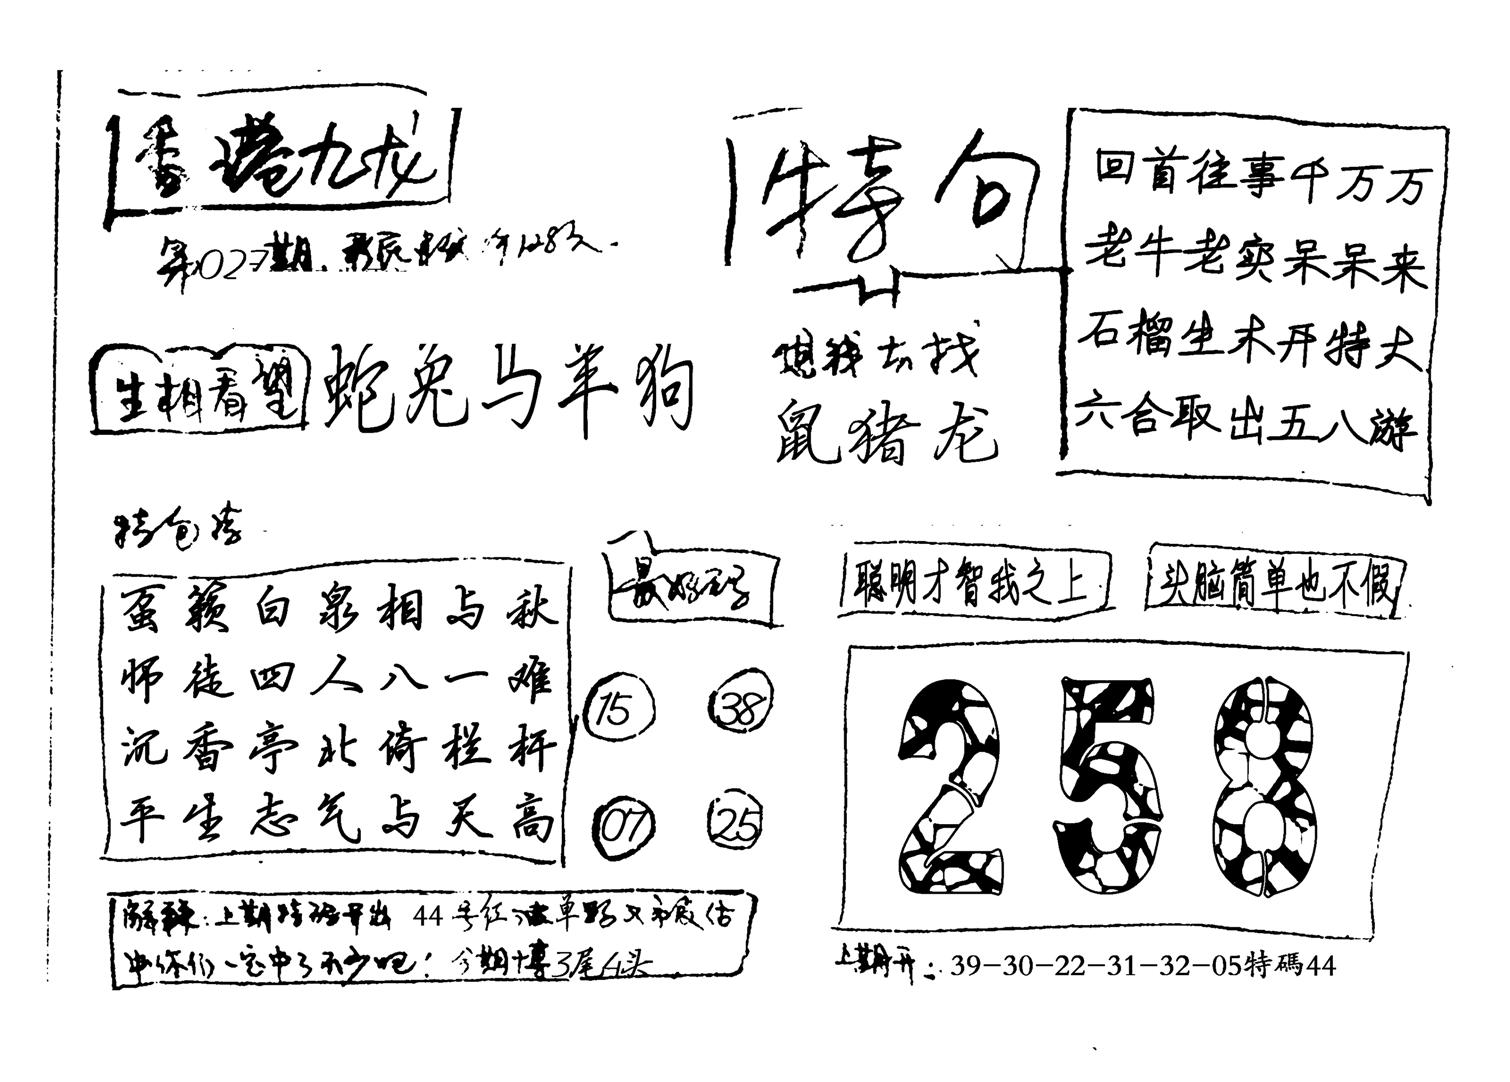 香港九龙
第027期
特句
回首往事千万万
老牛老实呆呆来
石榴生木开特大
六合取出五八游
生相看望 蛇兔与羊狗
想钱去找
鼠猪龙
特色诗
白泉相与秋
师徒四人八一难
沉香亭北倚栏杆
平生志气与天高
最好码
15 38
07 25
聪明才智我之上
头脑简单也不假
258
上期特码开出 44 号红 单
你们一定中了不少吧！今期博3尾
上期开：39-30-22-31-32-05特碼44